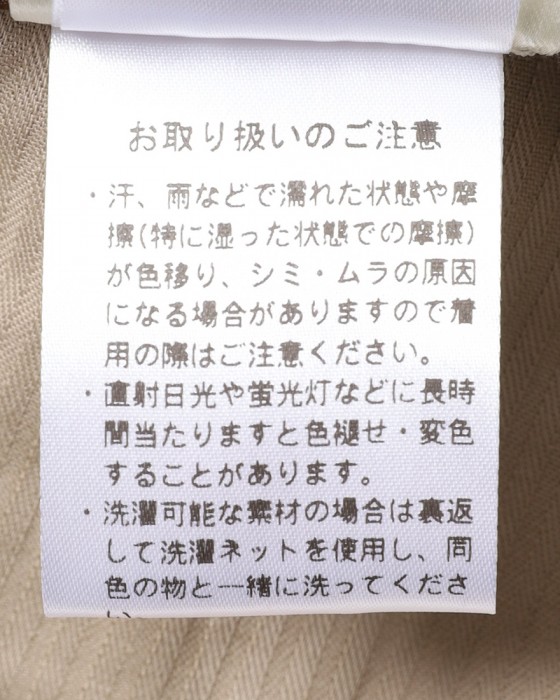 お取り扱いのご注意
・汗、雨などで濡れた状態や摩
擦(特に湿った状態での摩擦)
が色移り、シミ・ムラの原因
になる場合がありますので着
用の際はご注意ください。
・直射日光や蛍光灯などに長時
間当たりますと色褪せ・変色
することがあります。
・洗濯可能な素材の場合は裏返
して洗濯ネットを使用し、同
色の物と一緒に洗ってくださ